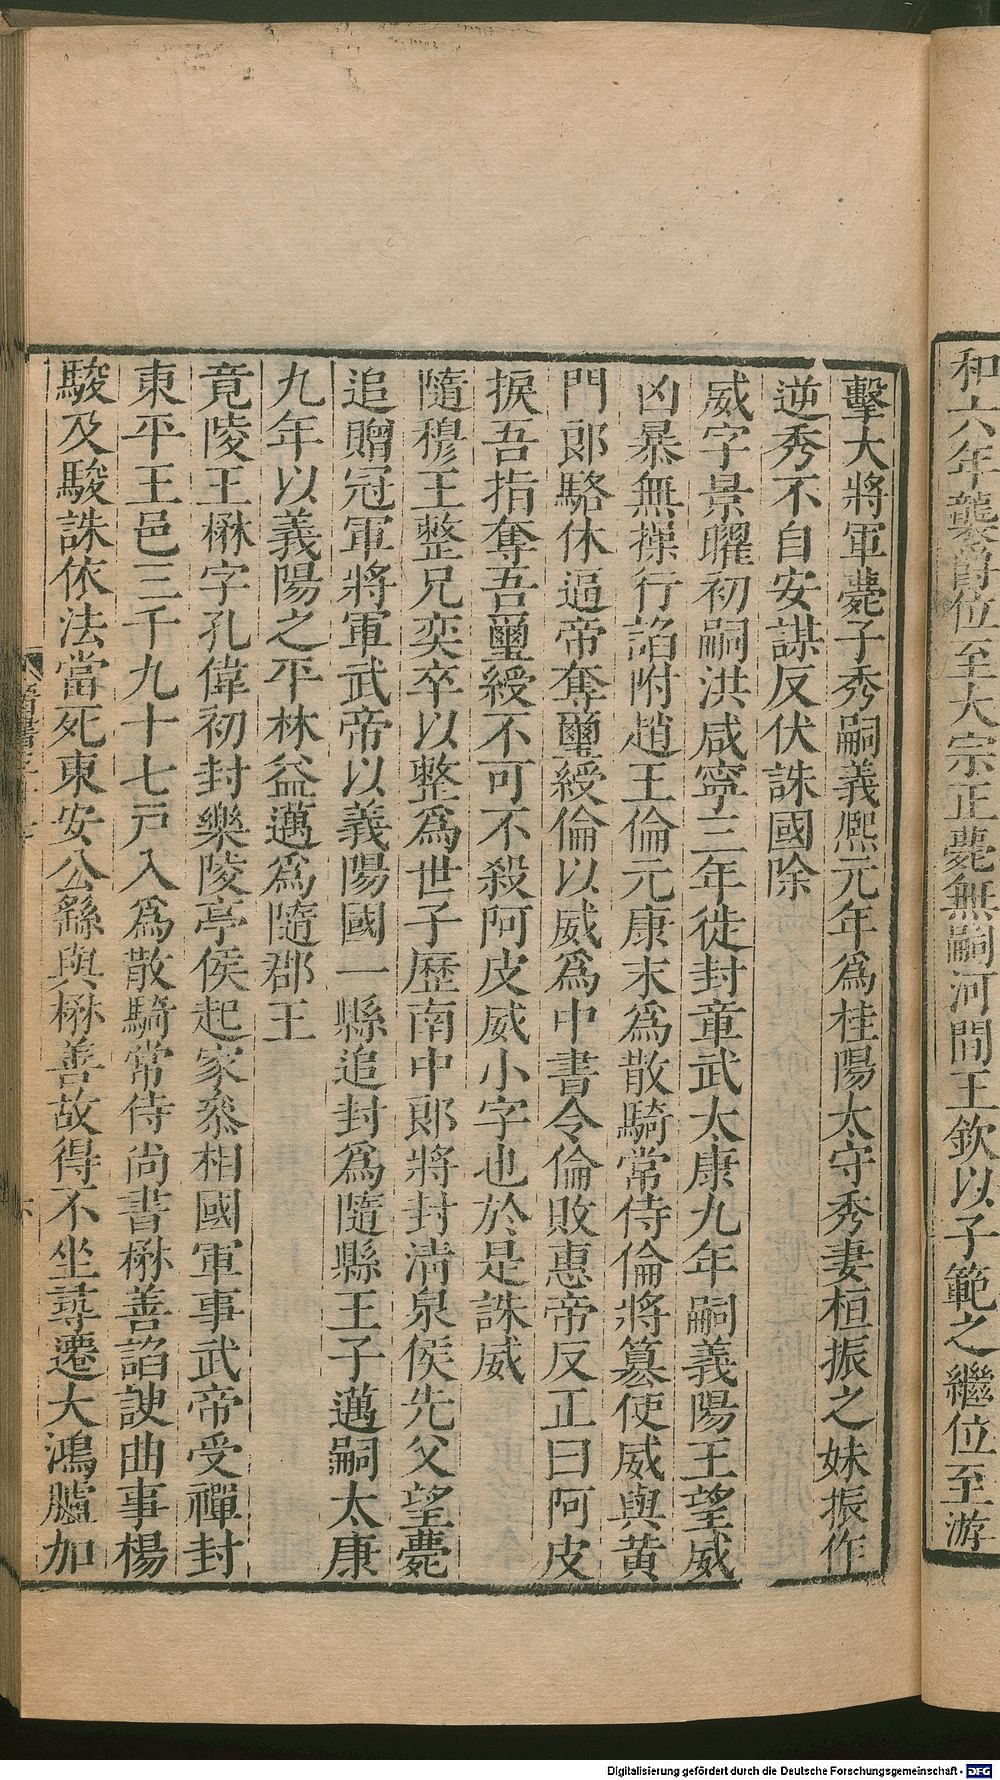 和六年襲爵位至大宗正薨無嗣河間王欽以子範之繼位至游
擊大將軍薨子秀嗣義熙元年為桂陽太守秀妻桓振之妹振作
逆秀不自安謀反伏誅國除
威字景曜初嗣洪咸寧三年徙封章武太康九年嗣義陽王望威
凶暴無操行諂附趙王倫元康末為散騎常侍倫將篡使威與黃
門郎駱休逼帝奪璽綬倫以威為中書令倫敗惠帝反正曰阿皮
捩吾指奪吾璽綬不可不殺阿皮威小字也於是誅威
隨穆王整兄奕卒以整為世子歷南中郎將封清泉侯先父望薨
追贈冠軍將軍武帝以義陽國一縣追封為隨縣王子邁嗣太康
九年以義陽之平林益邁為隨郡王
竟陵王楙字孔偉初封樂陵亭侯起家叅相國軍事武帝受禪封
東平王邑三千九十七戶入為散騎常侍尚書楙善諂諛曲事楊
駿及駿誅依法當死東安公繇與楙善故得不坐尋遷大鴻臚加
Digitalisierung gefördert durch die Deutsche Forschungsgemeinschaft - DFG